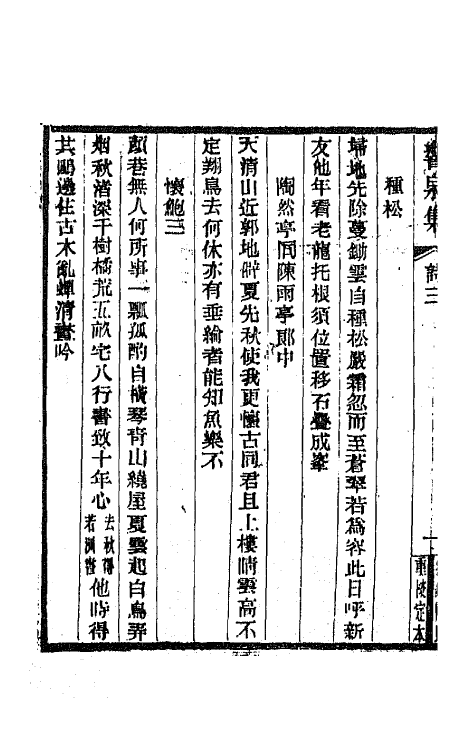 響泉集 詩三 一
定本
種松
埽地先除蔓鋤雲自種松嚴霜忽而至蒼翠若爲容此日呼新
友他年看老龍托根須位置移石疊成峯
陶然亭同陳雨亭郎中
天清山近郭地僻夏先秋使我更懷古同君且上樓晴雲高不
定翔鳥去何休亦有垂綸者能知魚樂不
懷鮑三
顏巷無人何所事一瓢孤酌自橫琴青山繞屋夏雲起白鳥弄
烟秋渚深千樹橘荒五畝宅八行書致十年心去秋得若洲書他時得
共鷗邊住古木亂蟬清晝吟